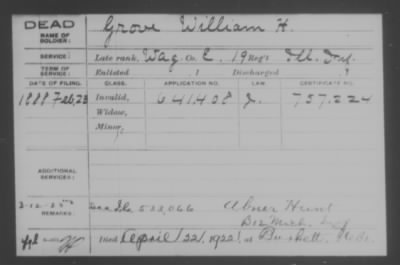 DEAD
NAME OF SOLDIER:
Grove William H.
SERVICE:
Late rank, Wag. Co. C. 19 Reg't Ill. Inf.
TERM OF SERVICE:
Enlisted 1 Discharged 1
DATE OF FILING. CLASS. APPLICATION NO. LAW. CERTIFICATE NO.
1888 Feb, 23 Invalid, 641.408 J. 757.224
Widow,
Minor,
ADDITIONAL SERVICES:
REMARKS:
533,066. Abner Hunt
Died April 22, 1922, at Nebr.